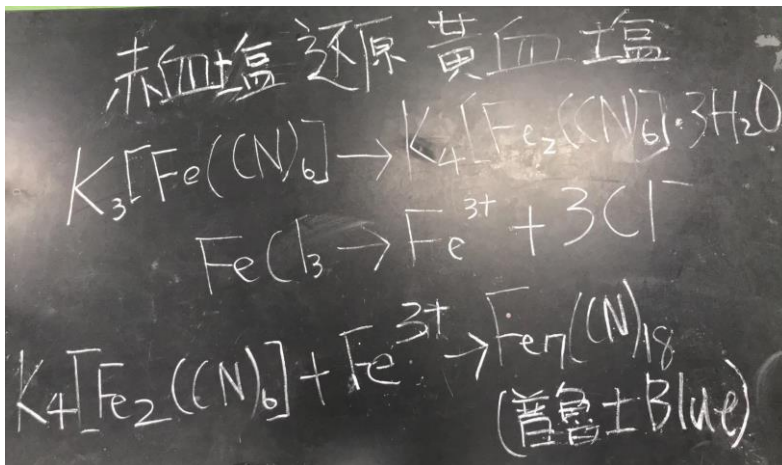 赤血塩 還原 黃血塩
K₃[Fe(CN)₆] → K₄[Fe₂(CN)₆]·3H₂O
FeCl₃ → Fe³⁺ + 3Cl⁻
K₄[Fe₂(CN)₆] + Fe³⁺ → Fe₇(CN)₁₈
(普魯士Blue)